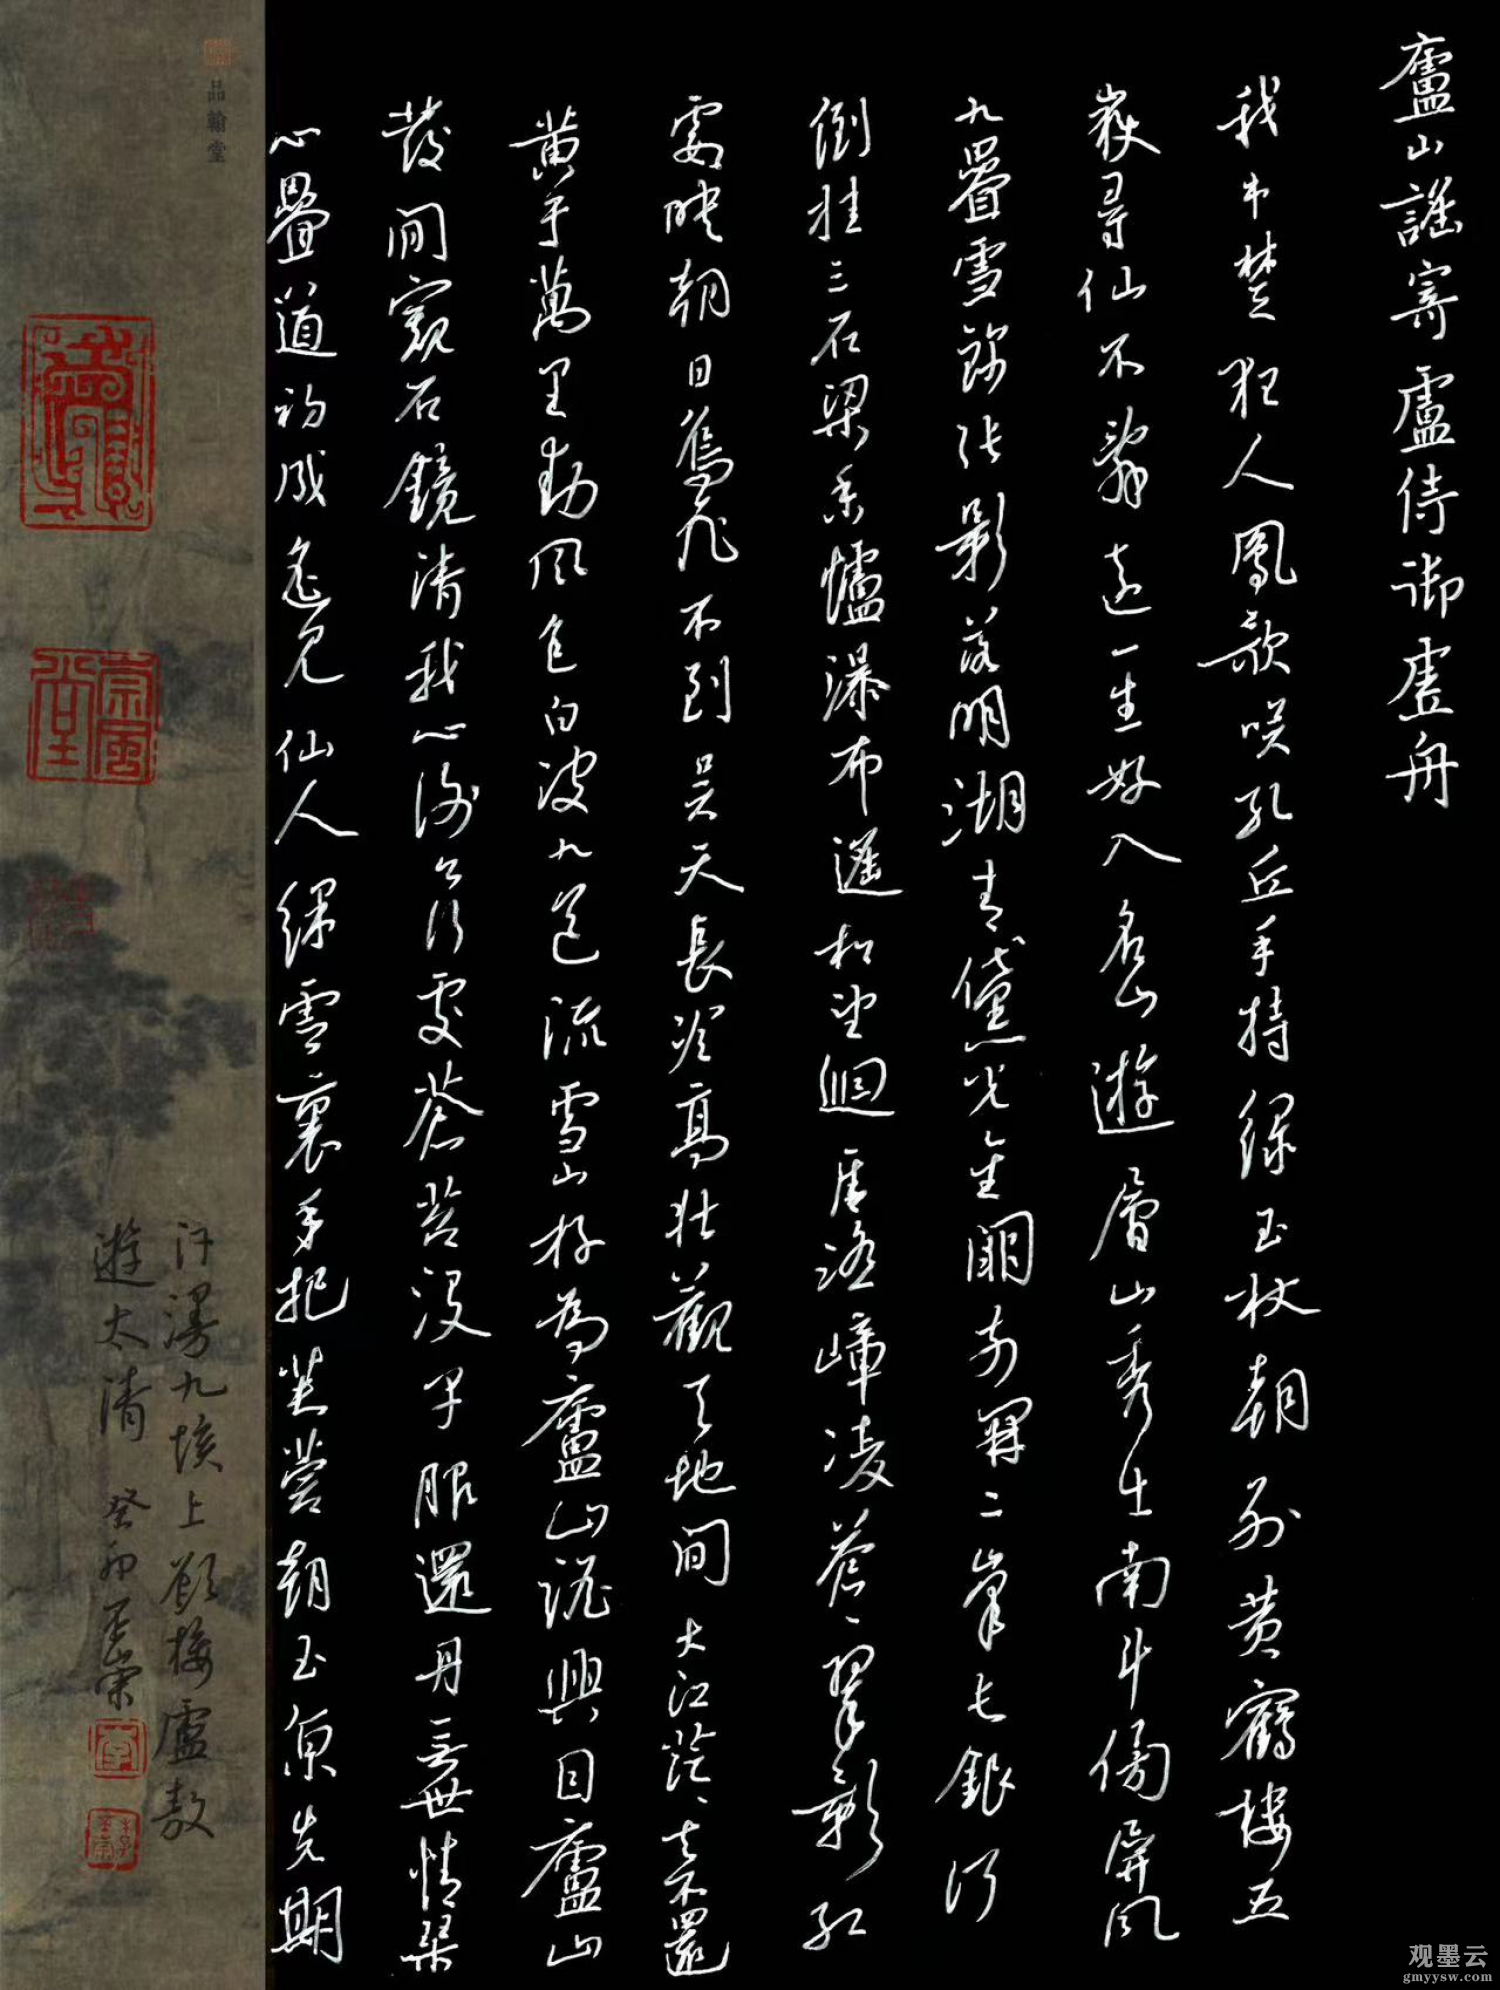 廬山謠寄盧侍御虛舟
我本楚狂人鳳歌咲孔丘手持綠玉杖朝別黃鶴樓五
嶽尋仙不辭遠一生好入名山遊廬山秀出南斗傍屏風
九疊雲錦張影落明湖青黛光金闕前開二峯長銀河
倒挂三石梁香爐瀑布遙相望迴崖沓嶂凌蒼〻翠影紅
霞映朝日鳥飛不到吳天長登高壯觀天地間大江茫〻去不還
黃雲萬里動風色白波九道流雪山好為廬山謠興因廬山
發閒窺石鏡清我心謝公行處蒼苔沒早服還丹無世情琴
心疊道初成遙見仙人綵雲裏手把芙蓉朝玉京先期
汗漫九垓上願接盧敖
遊太清 癸卯
品翰堂
观墨云
gmyysw.com